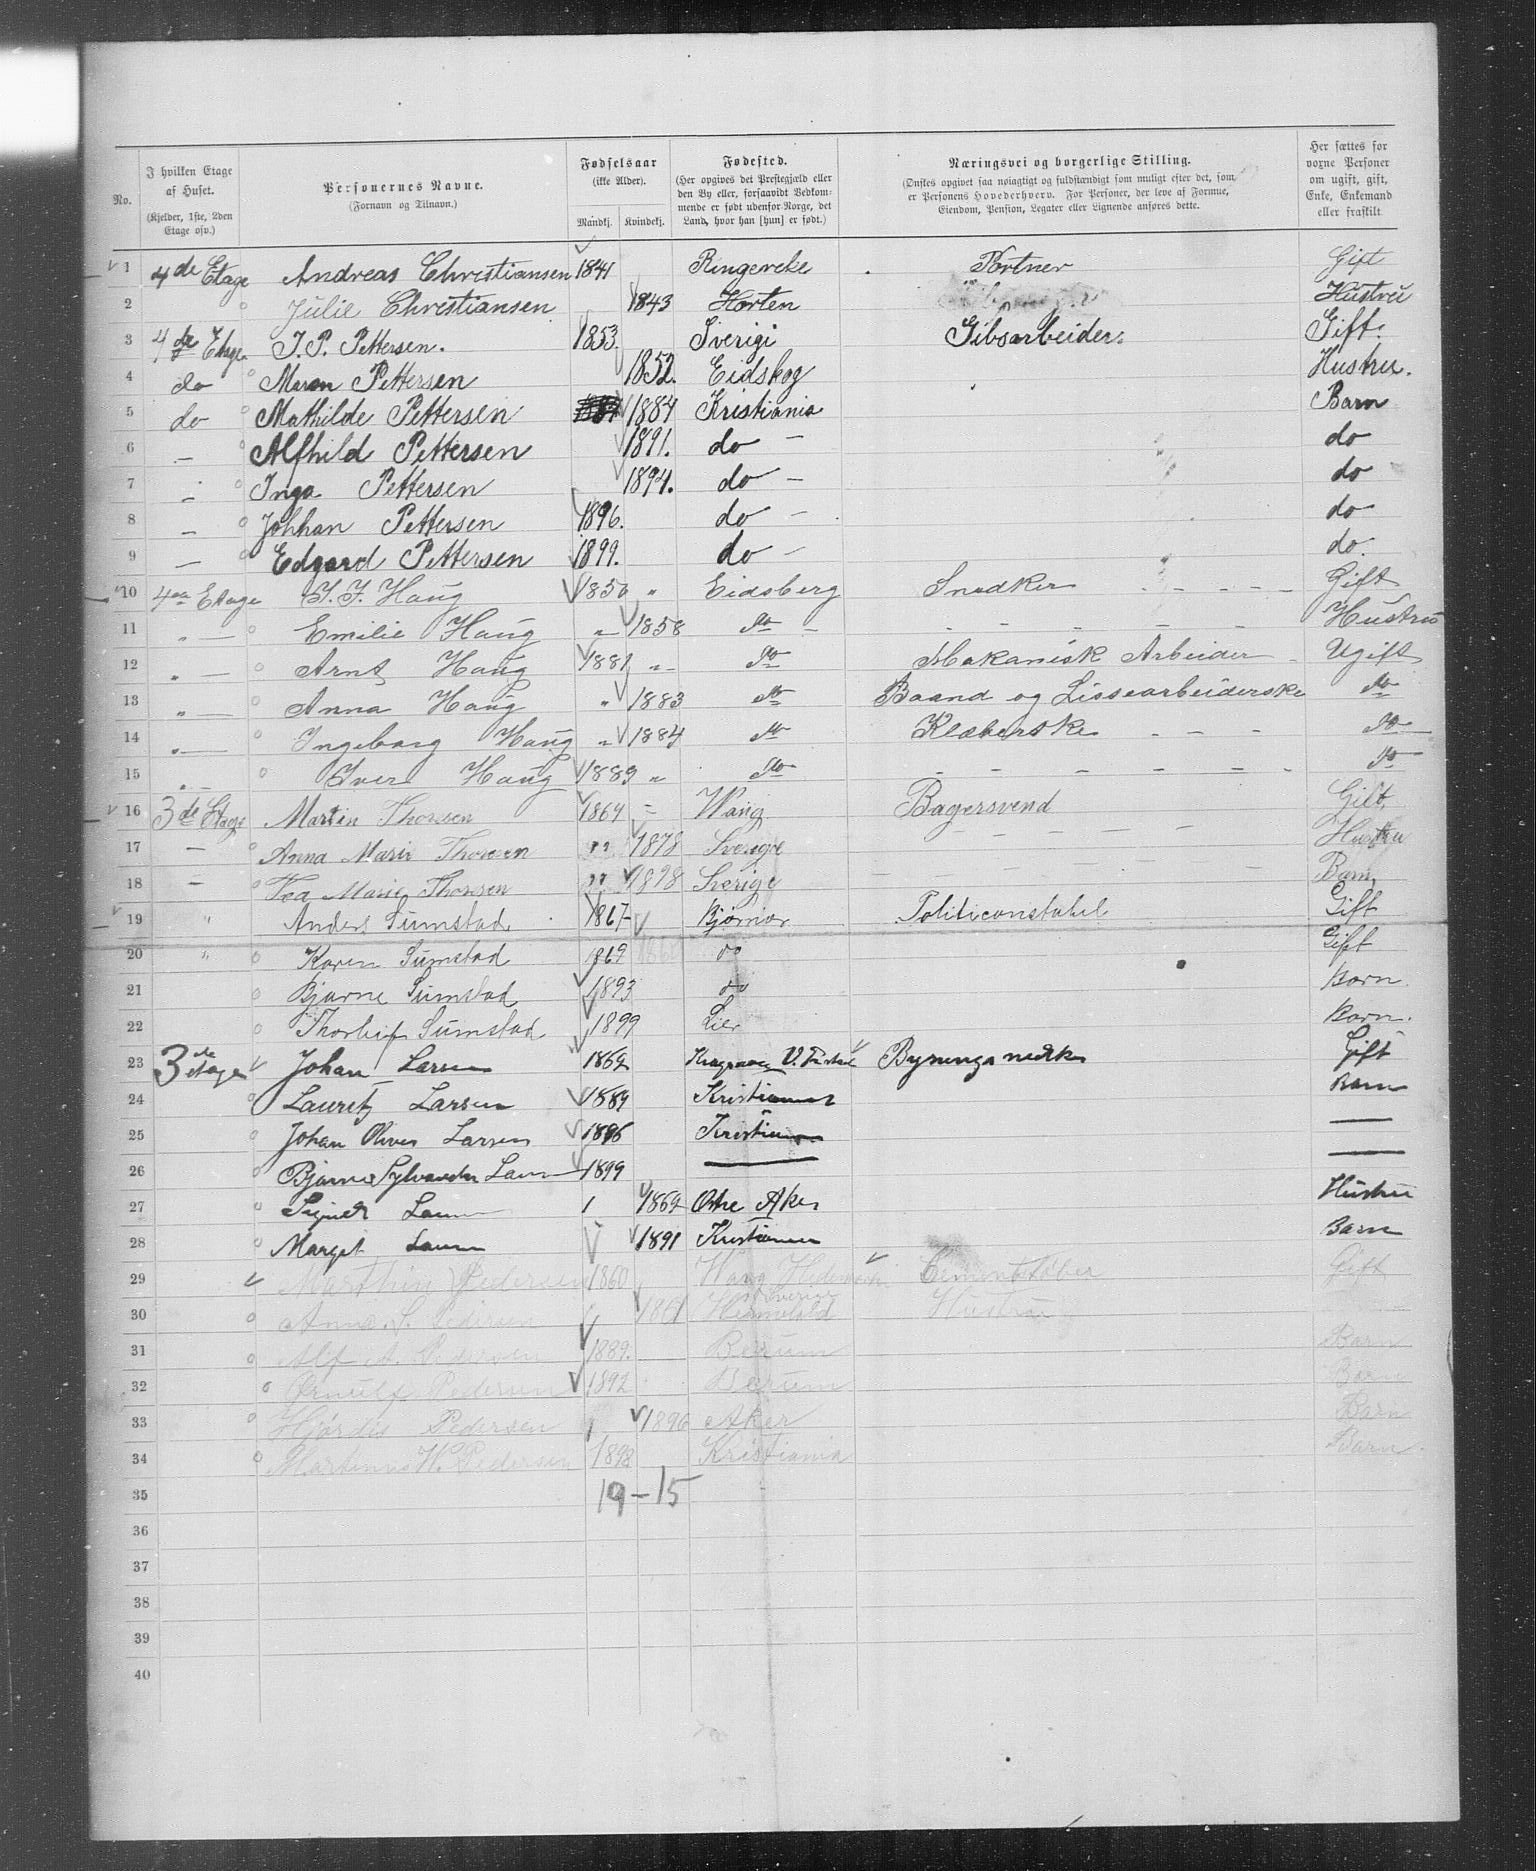 No. I hvilken Etage af Huset. (Kjelder, 1ste, 2den Etage osv.) Personernes Navne. (Fornavn og Tilnavn.) Fødselsaar (ikke Alder). Mandkj. Kvindekj. Fødested. (Her opgives det Prestegjæld eller den By eller, forsaavidt Vedkommende er født udenfor Norge, det Land, hvor han [hun] er født.) Næringsvei og borgerlige Stilling. (Ønskes opgivet saa nøiagtigt og fuldstændigt som muligt efter det, som er Personens Hovederhverv. For Personer, der leve af Formue, Eiendom, Pension, Legater eller Lignende anføres dette.) Her sættes for voxne Personer om ugift, gift, Enke, Enkemand eller fraskilt.
1 4de Etage Andreas Christiansen 1841 Ringereke Portner Gift
2 Julie Christiansen 1843 Horten Hustru
3 4de Etage J. P. Pettersen. 1853. Sverigi Gibsarbeider. Gift.
4 do Maren Pettersen 1852. Eidskog Hustru.
5 do Mathilde Pettersen 1884 Kristiania Barn
6 — Alfhild Pettersen 1891. do — do
7 — Inga Pettersen 1894. do — do
8 — Johhan Pettersen 1896. do — do
9 — Edgard Pettersen 1899. do — do.
10 4de Etage J. J. Haug 1850 " Eidsberg Snedker Gift
11 " — Emilie Haug " 1858 do — Hustru
12 " — Arnt Haug 1881 " do Mekanisk Arbeider Ugift
13 " — Anna Haug " 1883 do Baand og Lissearbeiderske do
14 " — Ingeborg Haug " 1884 do Klæberske do
15 " — Iver Haug 1889 " do do
16 3de Etage Martin Thorsen 1864 — Wang Bagersvend Gift
17 — Anna Marie Thorsen " 1878 Sverige Hustru
18 — Marie Thorsen " 1898 Sverige Barn
19 " Anders Sumstad 1867 Bjørnør Politiconstabel Gift
20 " Karen Sumstad 1869 do Gift
21 Bjarne Sumstad 1893 do Barn.
22 Thorleif Sumstad 1899 Lier Barn.
23 3de etage Johan Larsen 1862 Gift
24 Lauretz Larsen 1889 Kristiania Barn
25 Johan Oliver Larsen 1895 Kristiania —
26 Bjarne Sylvander Larsen 1899 — —
27 Signe Larsen 1869 Østre Aker Hustru
28 Marget Larsen 1891 Kristiania Barn
29 Marthin Pedersen 1860 Vang Hedemarken Cementstøber Gift
30 Anna S. Pedersen 1861 Sverige Hustru
31 Alf A. Pedersen 1889. Berum Barn
32 Ørnulf Pedersen 1892 Berum Barn
33 Hjørdis Pedersen 1896 Aker Barn
34 Martinus W. Pedersen 1898 Kristiania Barn.
35 19-15
36
37
38
39
40